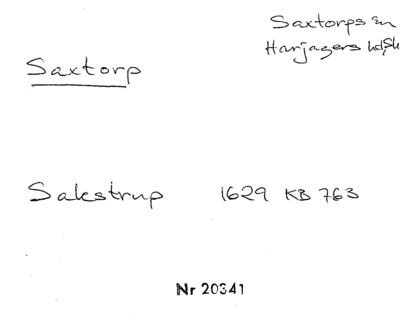 Saxtorps sn
Harjagers hd, Sk
Saxtorp
Sakstrup 1629 KB 763
Nr 20341